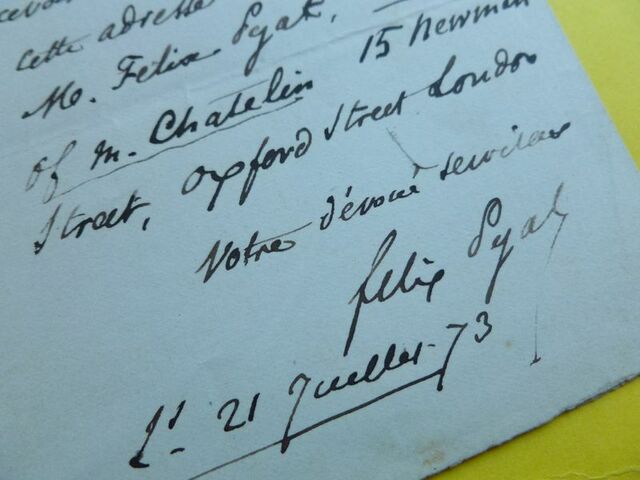 cette adresse
M. Félix Pyat,
of M. Chatelin 15 Newman
Street, Oxford Street London
Votre dévoué serviteur
Félix Pyat
21 Juillet 73